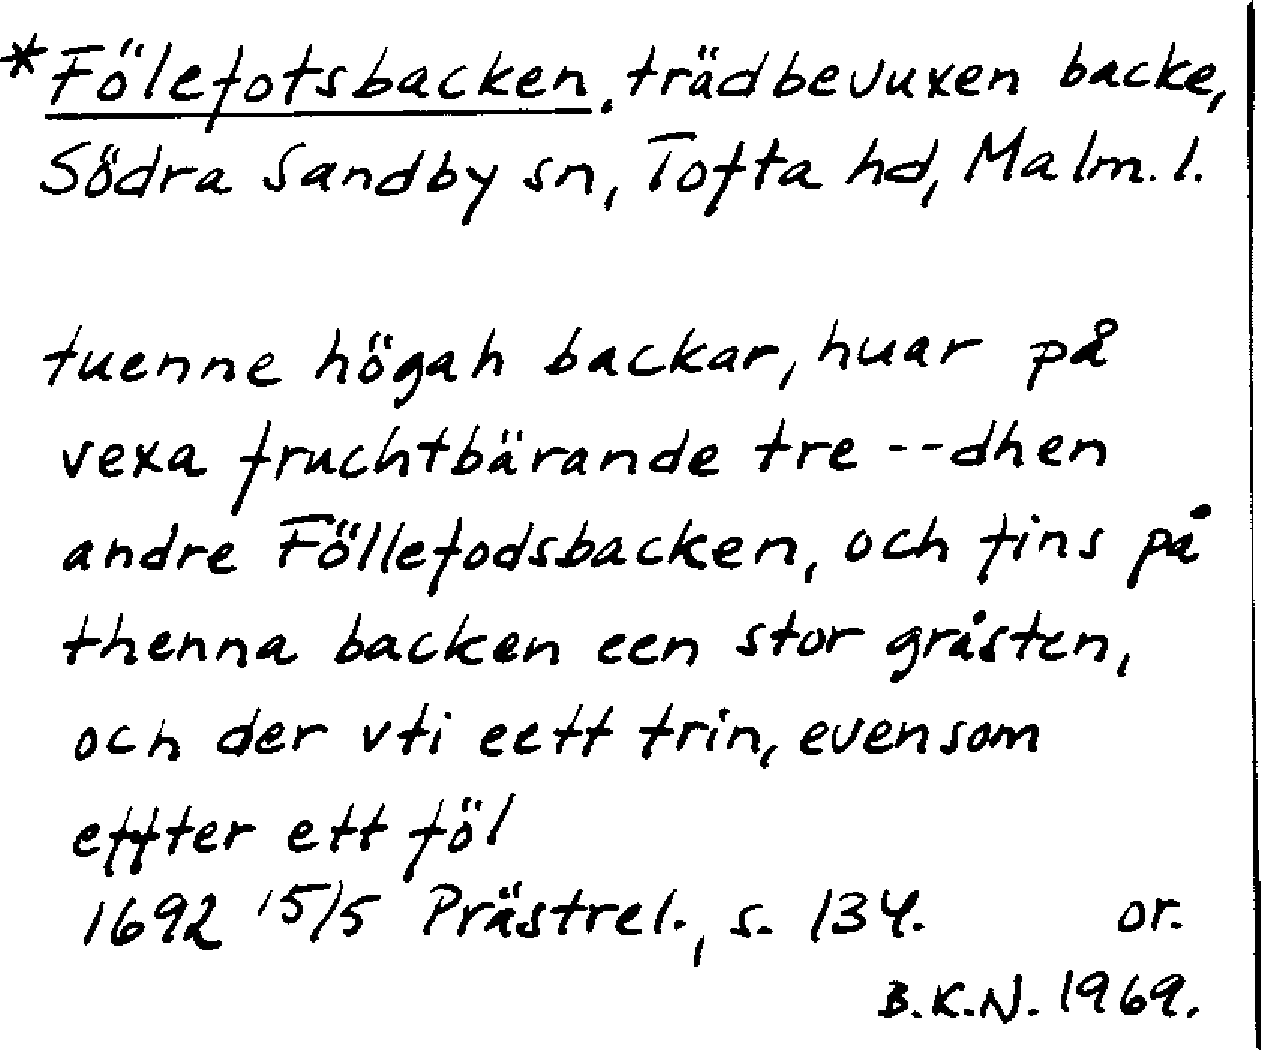 *Fölefotsbacken, trädbevuxen backe,
Södra Sandby sn, Tofta hd, Malm. l.
tuenne högah backar, huar på
vexa fruchtbärande tre -- dhen
andre Föllefodsbacken, och fins på
thenna backen een stor gråsten,
och der vti eett trin, evensom
effter ett föl
1692 15/5 Prästrel., s. 134. or.
B.K.N. 1969.